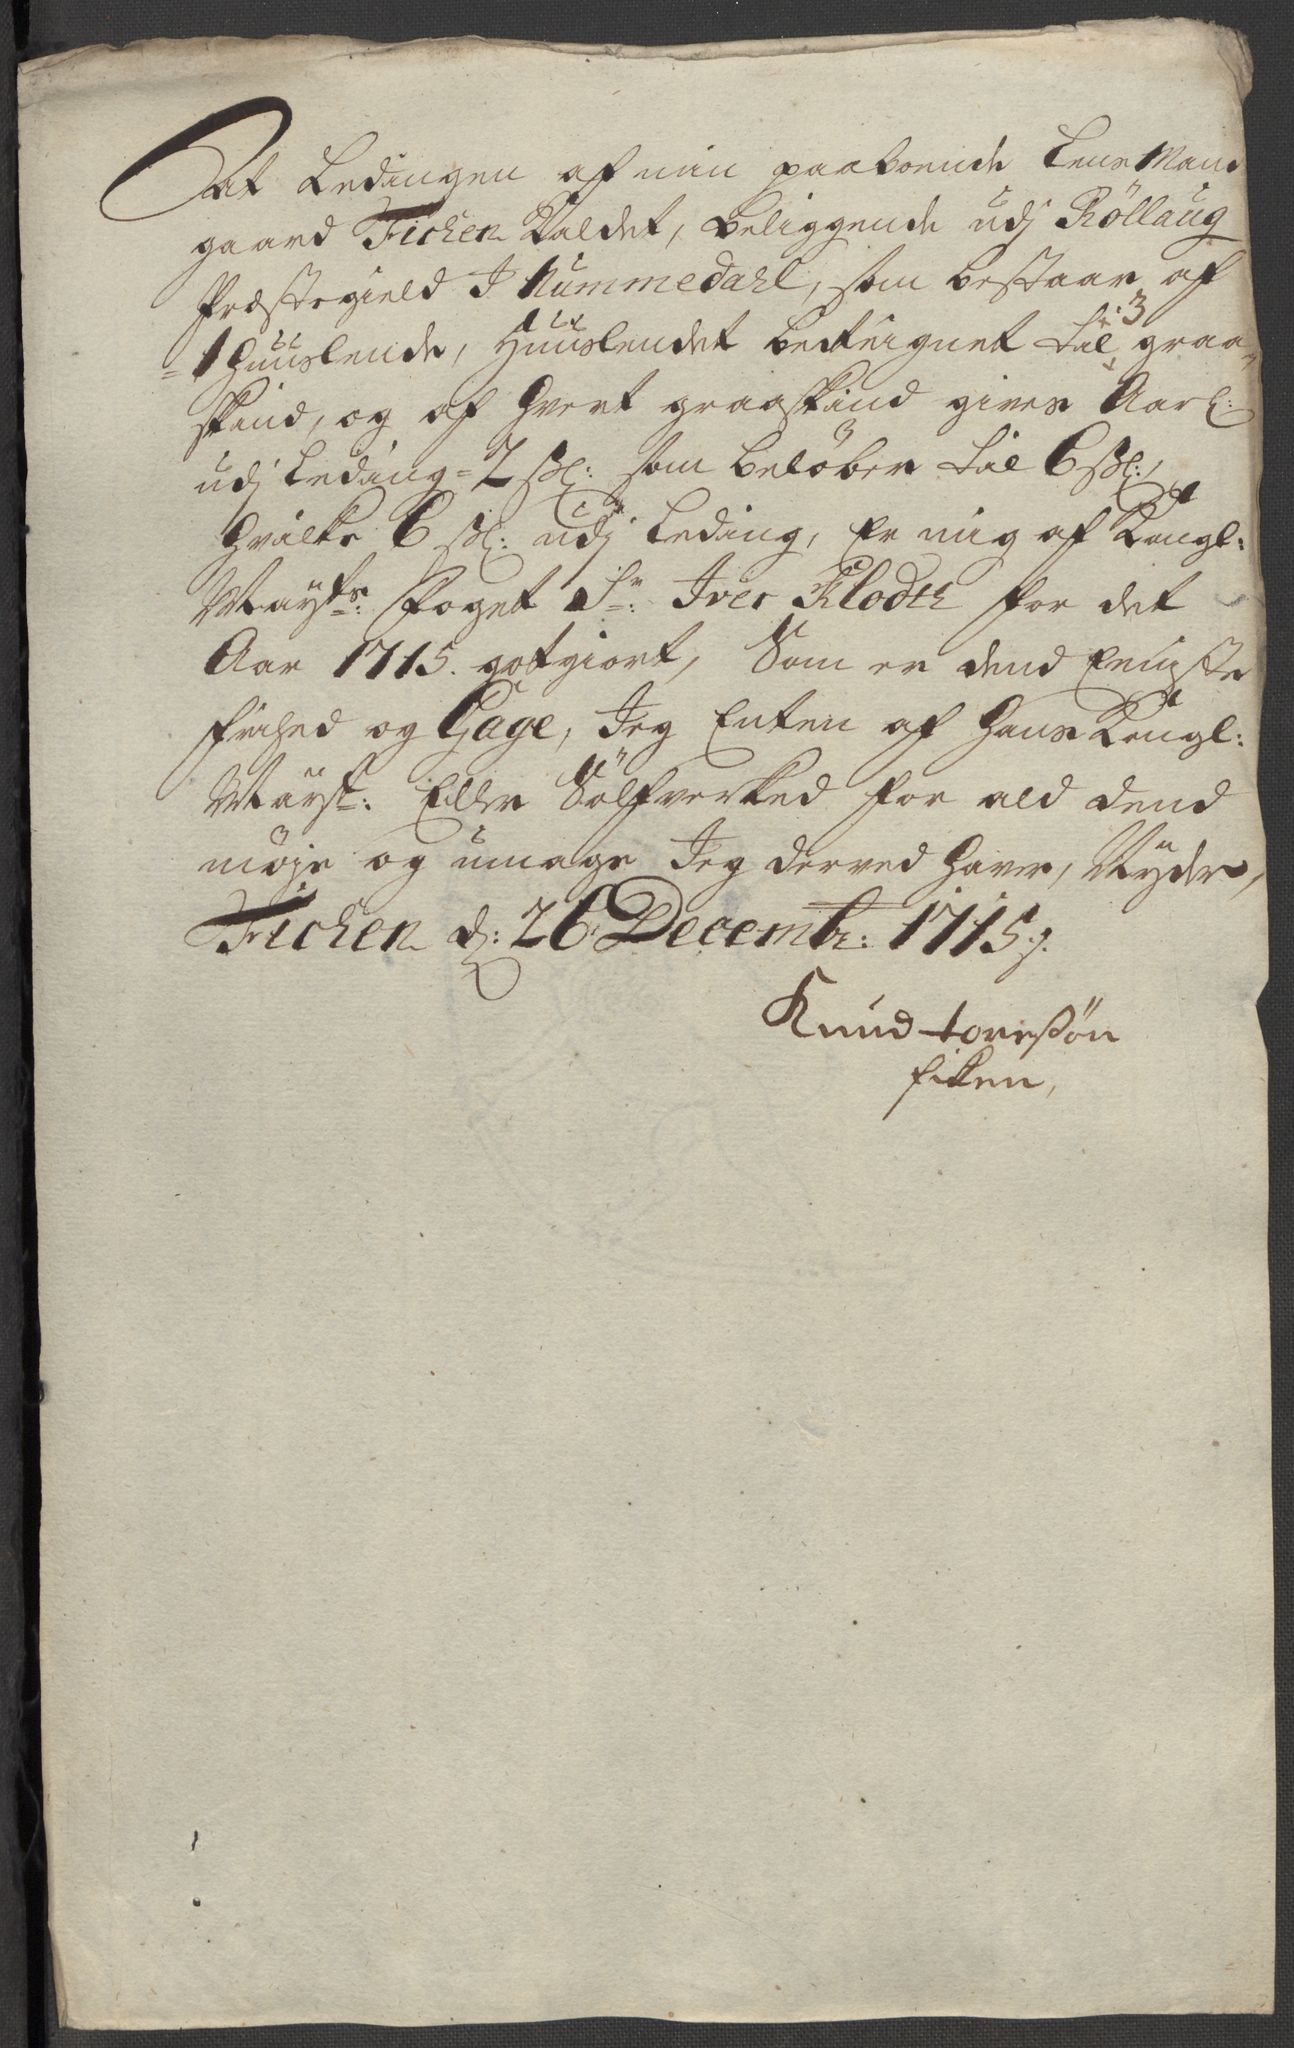 At Ledingen af min paaboende LensMand
gaard Ficken Kaldet, beliggende udj Röllaug
Præstegield I Nummedahl, som bestaar af
= 1 Huuslende, Huuslendet beteignet til 3 graa=
skind, og af hvert graaskind gives Aarl:
udj Leding = 2 sk: som beløber til 6 sk:,
hvilke 6 sk: udj Leding, Er mig af Kongl:
Mayts: Foget Sr: Iver Klodth for det
Aar 1715. gotgiort, Som er dend Eeniste
frihed og Gage, Jeg Enten af Hans Kongl:
Mayt: Eller Sölfverked for ald dend
möje og umage Jeg derved haver, Nÿder,
Ficken d: 26 Decembr: 1715.
Knud toresßön
fiken,